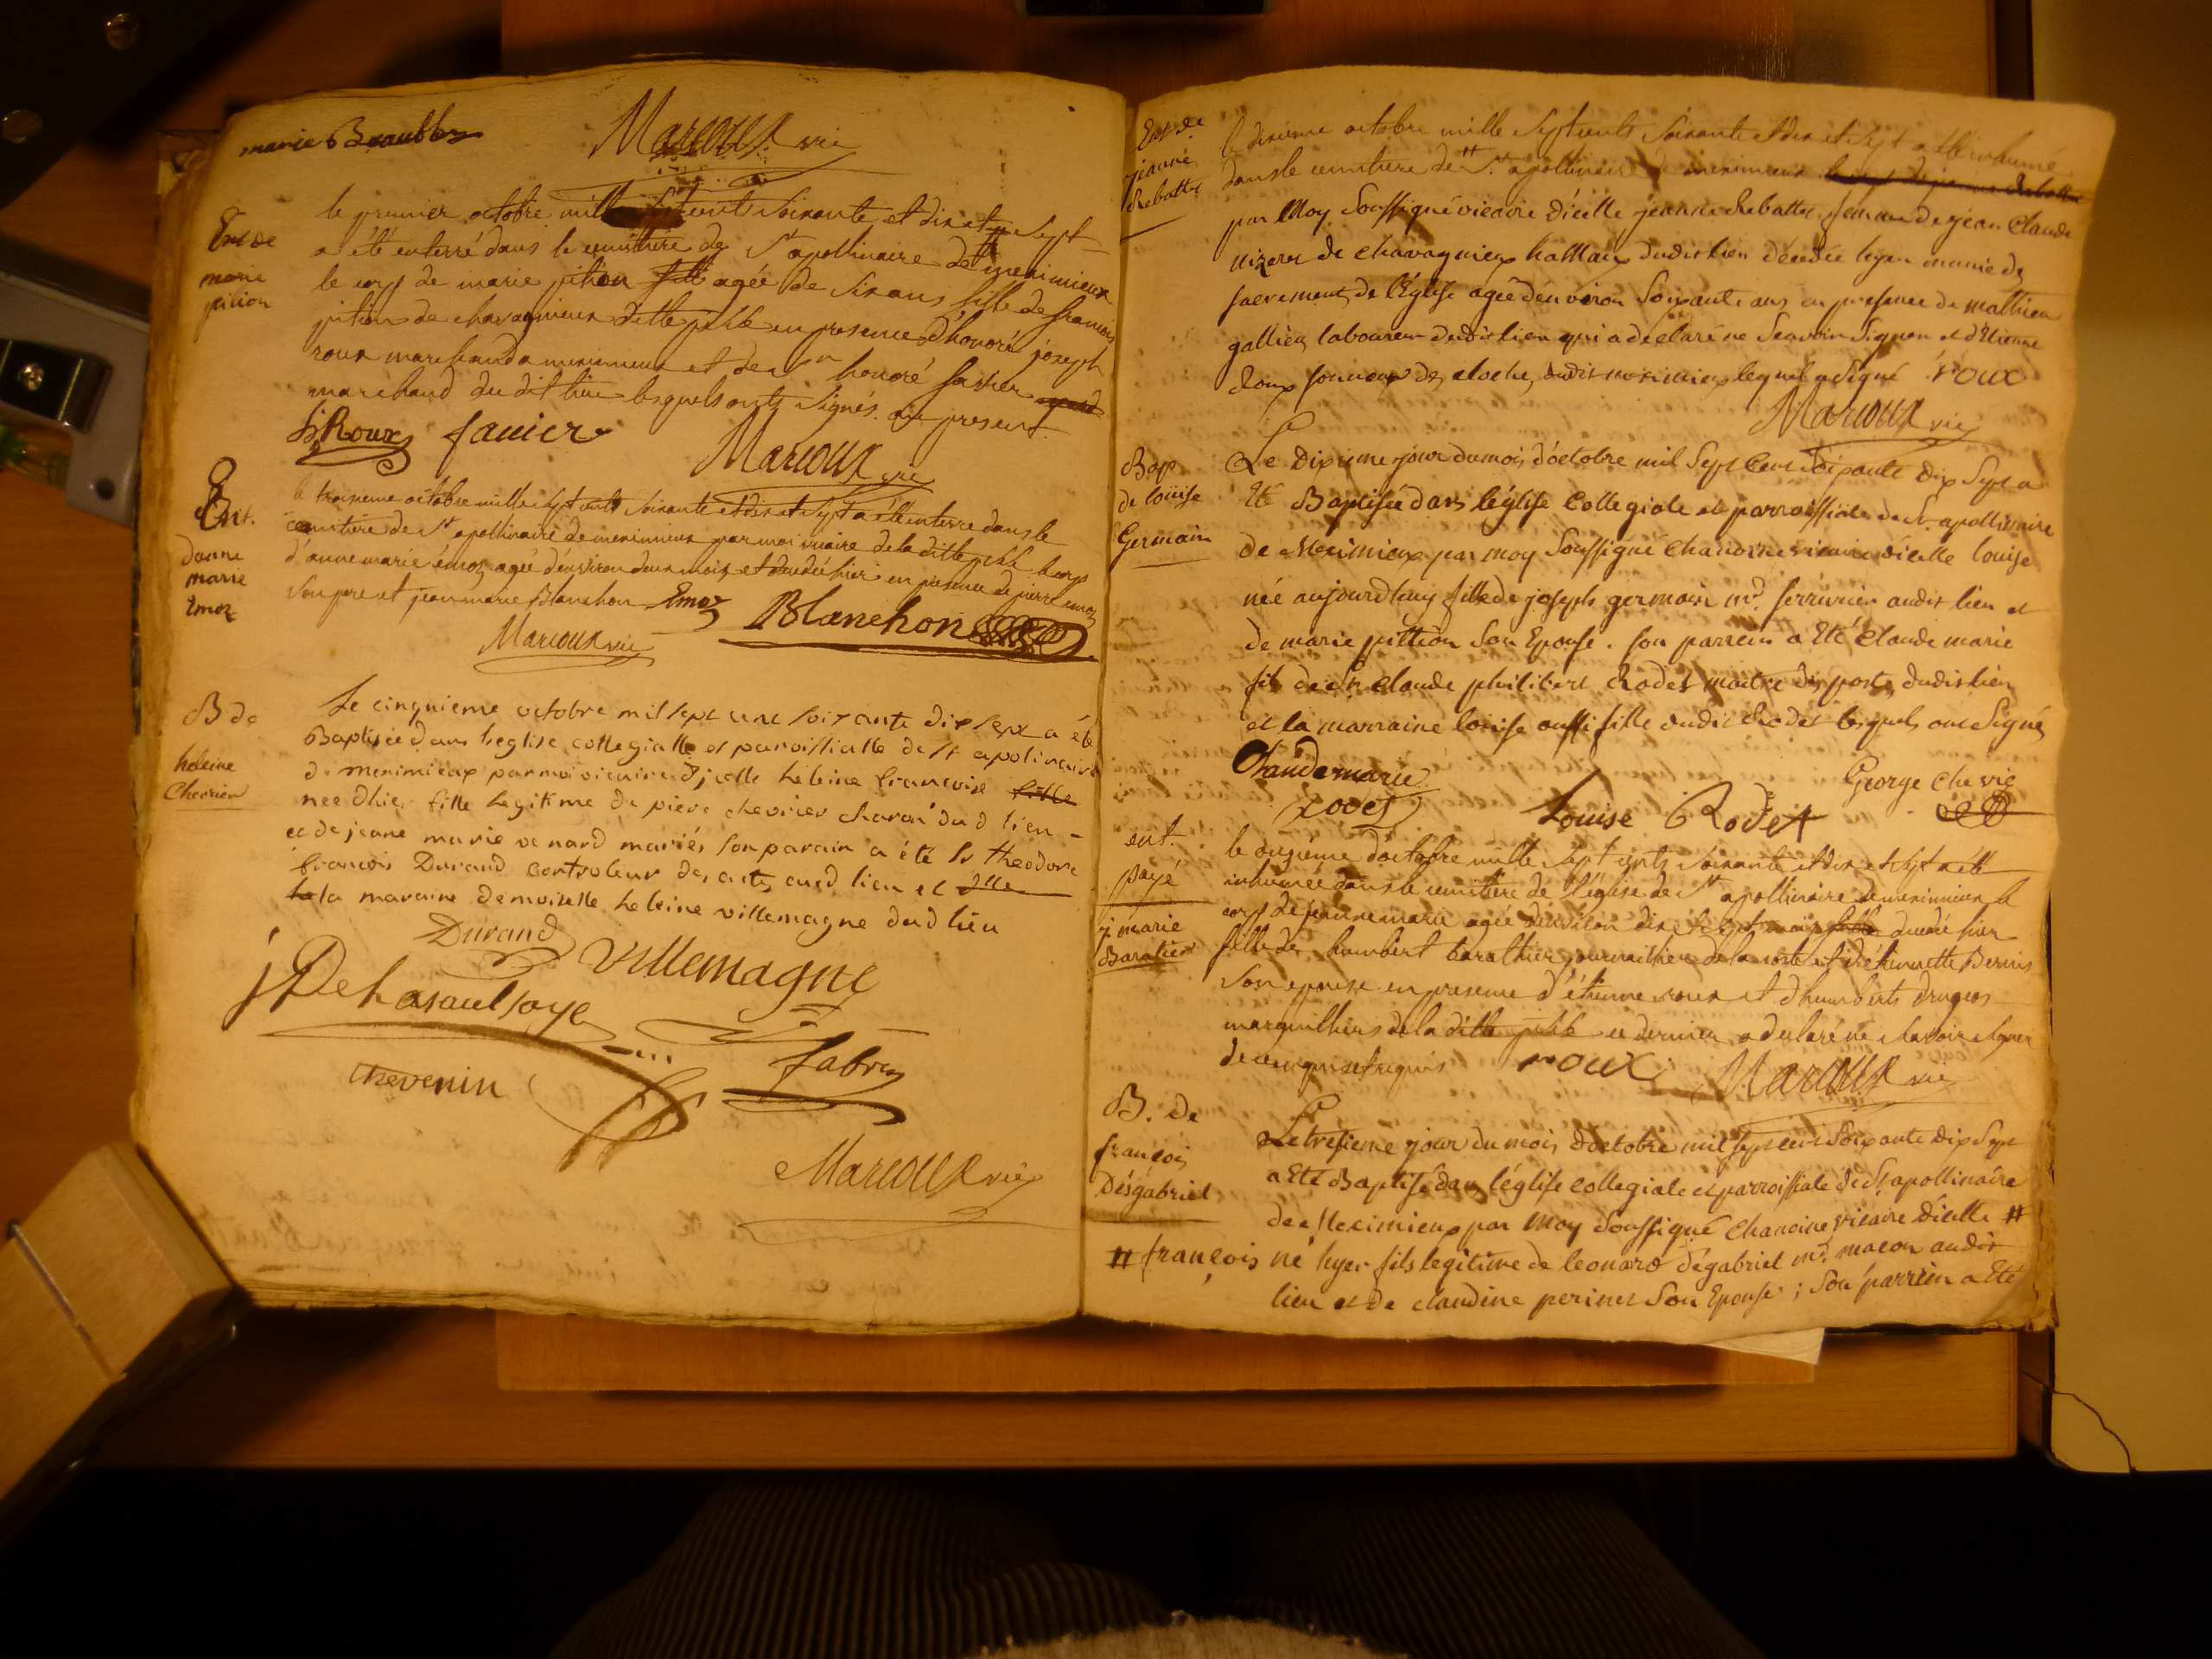 marie
Marcoux vic
Ent de
marie
pition
le premier octobre mille sept cents soixante et dix et sept
a été enterré dans le cemitiere de St apollinaire de meximieux
le corps de marie pition agée de six ans fille de francois
pition de chavagnieux dette psse en presence d'honoré joseph
roux marchand a meximieux et de Sr honoré favier
marchand du dit lieu lesquels ont signés au present
Roux favier
Marcoux vic
Ent.
danne
marie
Emoz
le troisieme octobre mille sept cents soixante et dix et sept a été enterré dans le
cemitiere de St apollinaire de meximieux par moi vicaire de la ditte psse le corps
d'anne marie émoz agée d'environ deux mois et decedée hier en presence de pierre emoz
son pere et jean marie Blanchon Emoz
Blanchon
Marcoux vic
B de
heleine
Chevrier
Le cinquieme octobre mil sept cent soixante dix sept a été
Baptisée dans l'eglise collegialle et paroissialle de st apolinaire
de meximieux par moi vicaire d'icelle heleine francoise fille
nee d'hier fille legitime de piere chevrier charon dud lieu
et de jeane marie venard mariés son parain a été Sr theodore
francois Durand controleur des actes aud lieu et dlle
la maraine demoiselle heleine villemagne dud lieu
Durand
Villemagne
jDelasaulsaye
fabry
thevenin
Marcoux vic
Ent de
jeanne
Rebattes
le dixieme octobre mille sept cents soixante et dix et sept a été inhumé
dans le cemitiere de St apollinaire de meximieux
par Moy Soussigné vicaire d'icelle jeanne Rebattes femme de jean Claude
de chavagnieux hammaux dudit lieu décédée hyer munie des
sacrements de l'Eglise agée d'environ soixante ans en presence de mathieu
gallien laboureur dudit lieu qui a declaré ne scavoir signer et d'Etienne
Roux sonneur des cloches dudit meximieux lequel a signé roux
Marcoux vic
Bap
de loüise
Germain
Le Dixieme jour du mois d'octobre mil Sept Cent Soixante Dix Sept a
Eté Baptisée dans l'église Collegiale et parroissiale de St. apollinaire
de Meximieux par moy Soussigné Chanoine vicaire d'icelle louise
née aujourdhuy fille de joseph germain md. serrurier audit lieu et
de marie pittion Son Epouse. son parrein a Eté Claude marie
fils de Sr. Claude philibert Rodet maitre des postes dudit lieu
et la marraine loüise aussi fille dudit Rodet lesquels ont Signé
Claude marie
rodet
Louise Rodet
George Ch vic
ent.
payé
j marie
Baratier
le onzieme d'octobre mille sept cents soixante et dix et sept a été
inhumée dans le cemitiere de l'église de St apollinaire de meximieux le
corps de jeanne marie agée d'environ dix et sept mois decedé hier
fille de humbert barathier journaillier de la coste et d'étiennette
son epouse en presence d'étienne roux et d'humberts drugeos
marguilliers de la ditte psse ce dernier a declaré ne scavoir signer
de ce enquis et requis roux Marcoux vic
B. De
françois
Dégabriel
Le tresieme jour du mois d'octobre mil Sept Cent Soixante Dix Sept
a Eté Baptisé dans l'église collegiale et parroissiale de St. apollinaire
de Meximieux par moy Soussigné Chanoine vicaire d'icelle #
# françois né hyer fils legitime de leonard dégabriel md. macon audit
lieu et de claudine perinet Son Epouse ; Son parrein a Eté